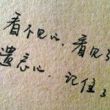 看不见心，看见了
遗忘心，记住了